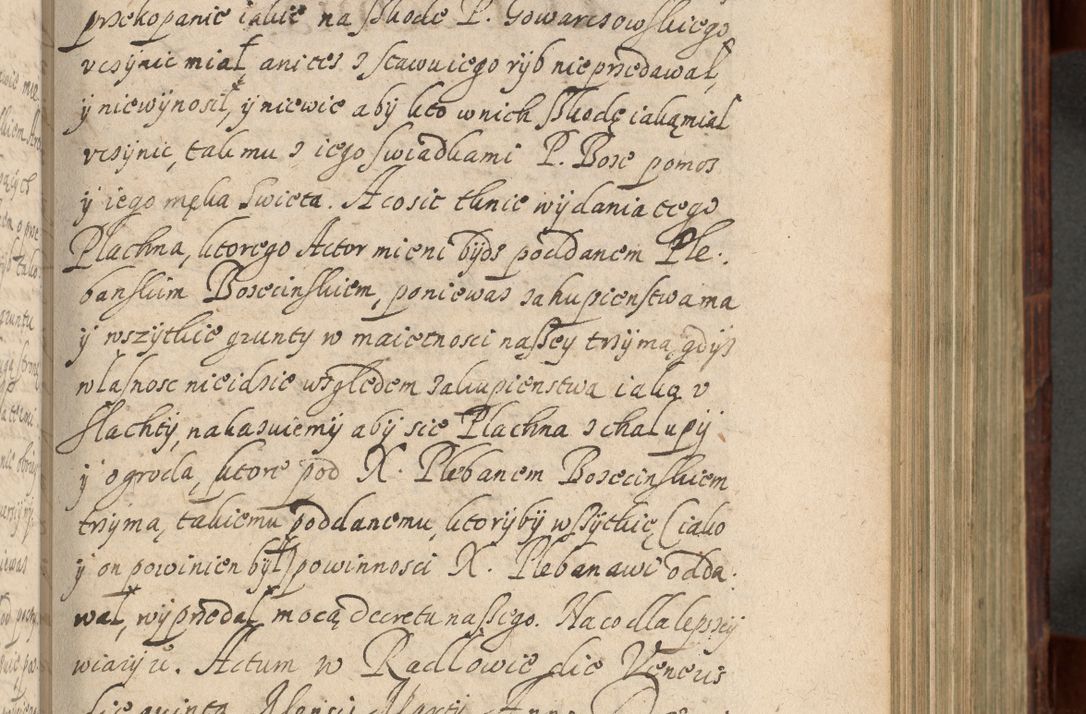 przekopanie iakie na szkodę P. Gowarczowskiego
vczynić miał, ani tes z stawu iego ryb nieprzedawał,
ÿ niewynosił, ÿ niewie aby kto w nich szkodę iaką miał
vczynic, tak mu z iego swiadkami P. Boze pomos
ÿ iego męka Swieta. A co sie tknie wydania tego
Płachna, ktorego Actor mieni bydz poddanem Ple.
banskim Bozecinskiem, poniewas zakupienstwa ma
ÿ wszytkie grunty w maietnosci naszey trzyma, gdyz
własnosc nieidzie względem zakupienstwa iaką v
slachty, nakazuiemy aby sie Płachna z chałupy
ÿ ogroda, ktore pod X. Plebanem Bozecinskiem
trzyma, takiemu poddanemu, ktoryby wszytkie (iako
ÿ on powinien był) powinnosci X. Plebanawi odda.
wał, wyprzedał mocą decretu naszego. Na co dla lepszey
wiary &c. Actum w Radłowie die Veneris
die quinta Mensis Martÿ Anno